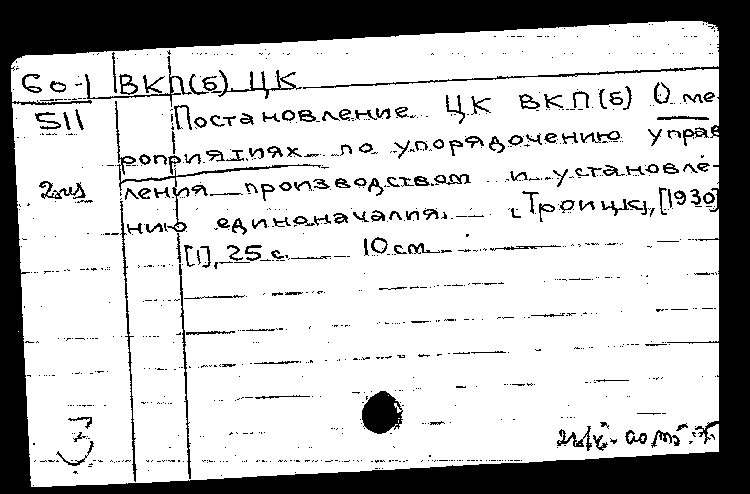 60-1 ВКП(б) ЦК
511 Постановление ЦК ВКП(б) О ме-
роприятиях по упорядочению управ
2 экз ления производством и установле-
нию единоначалия. [Троицк], [1930]
[1], 25 с. 10 см
3